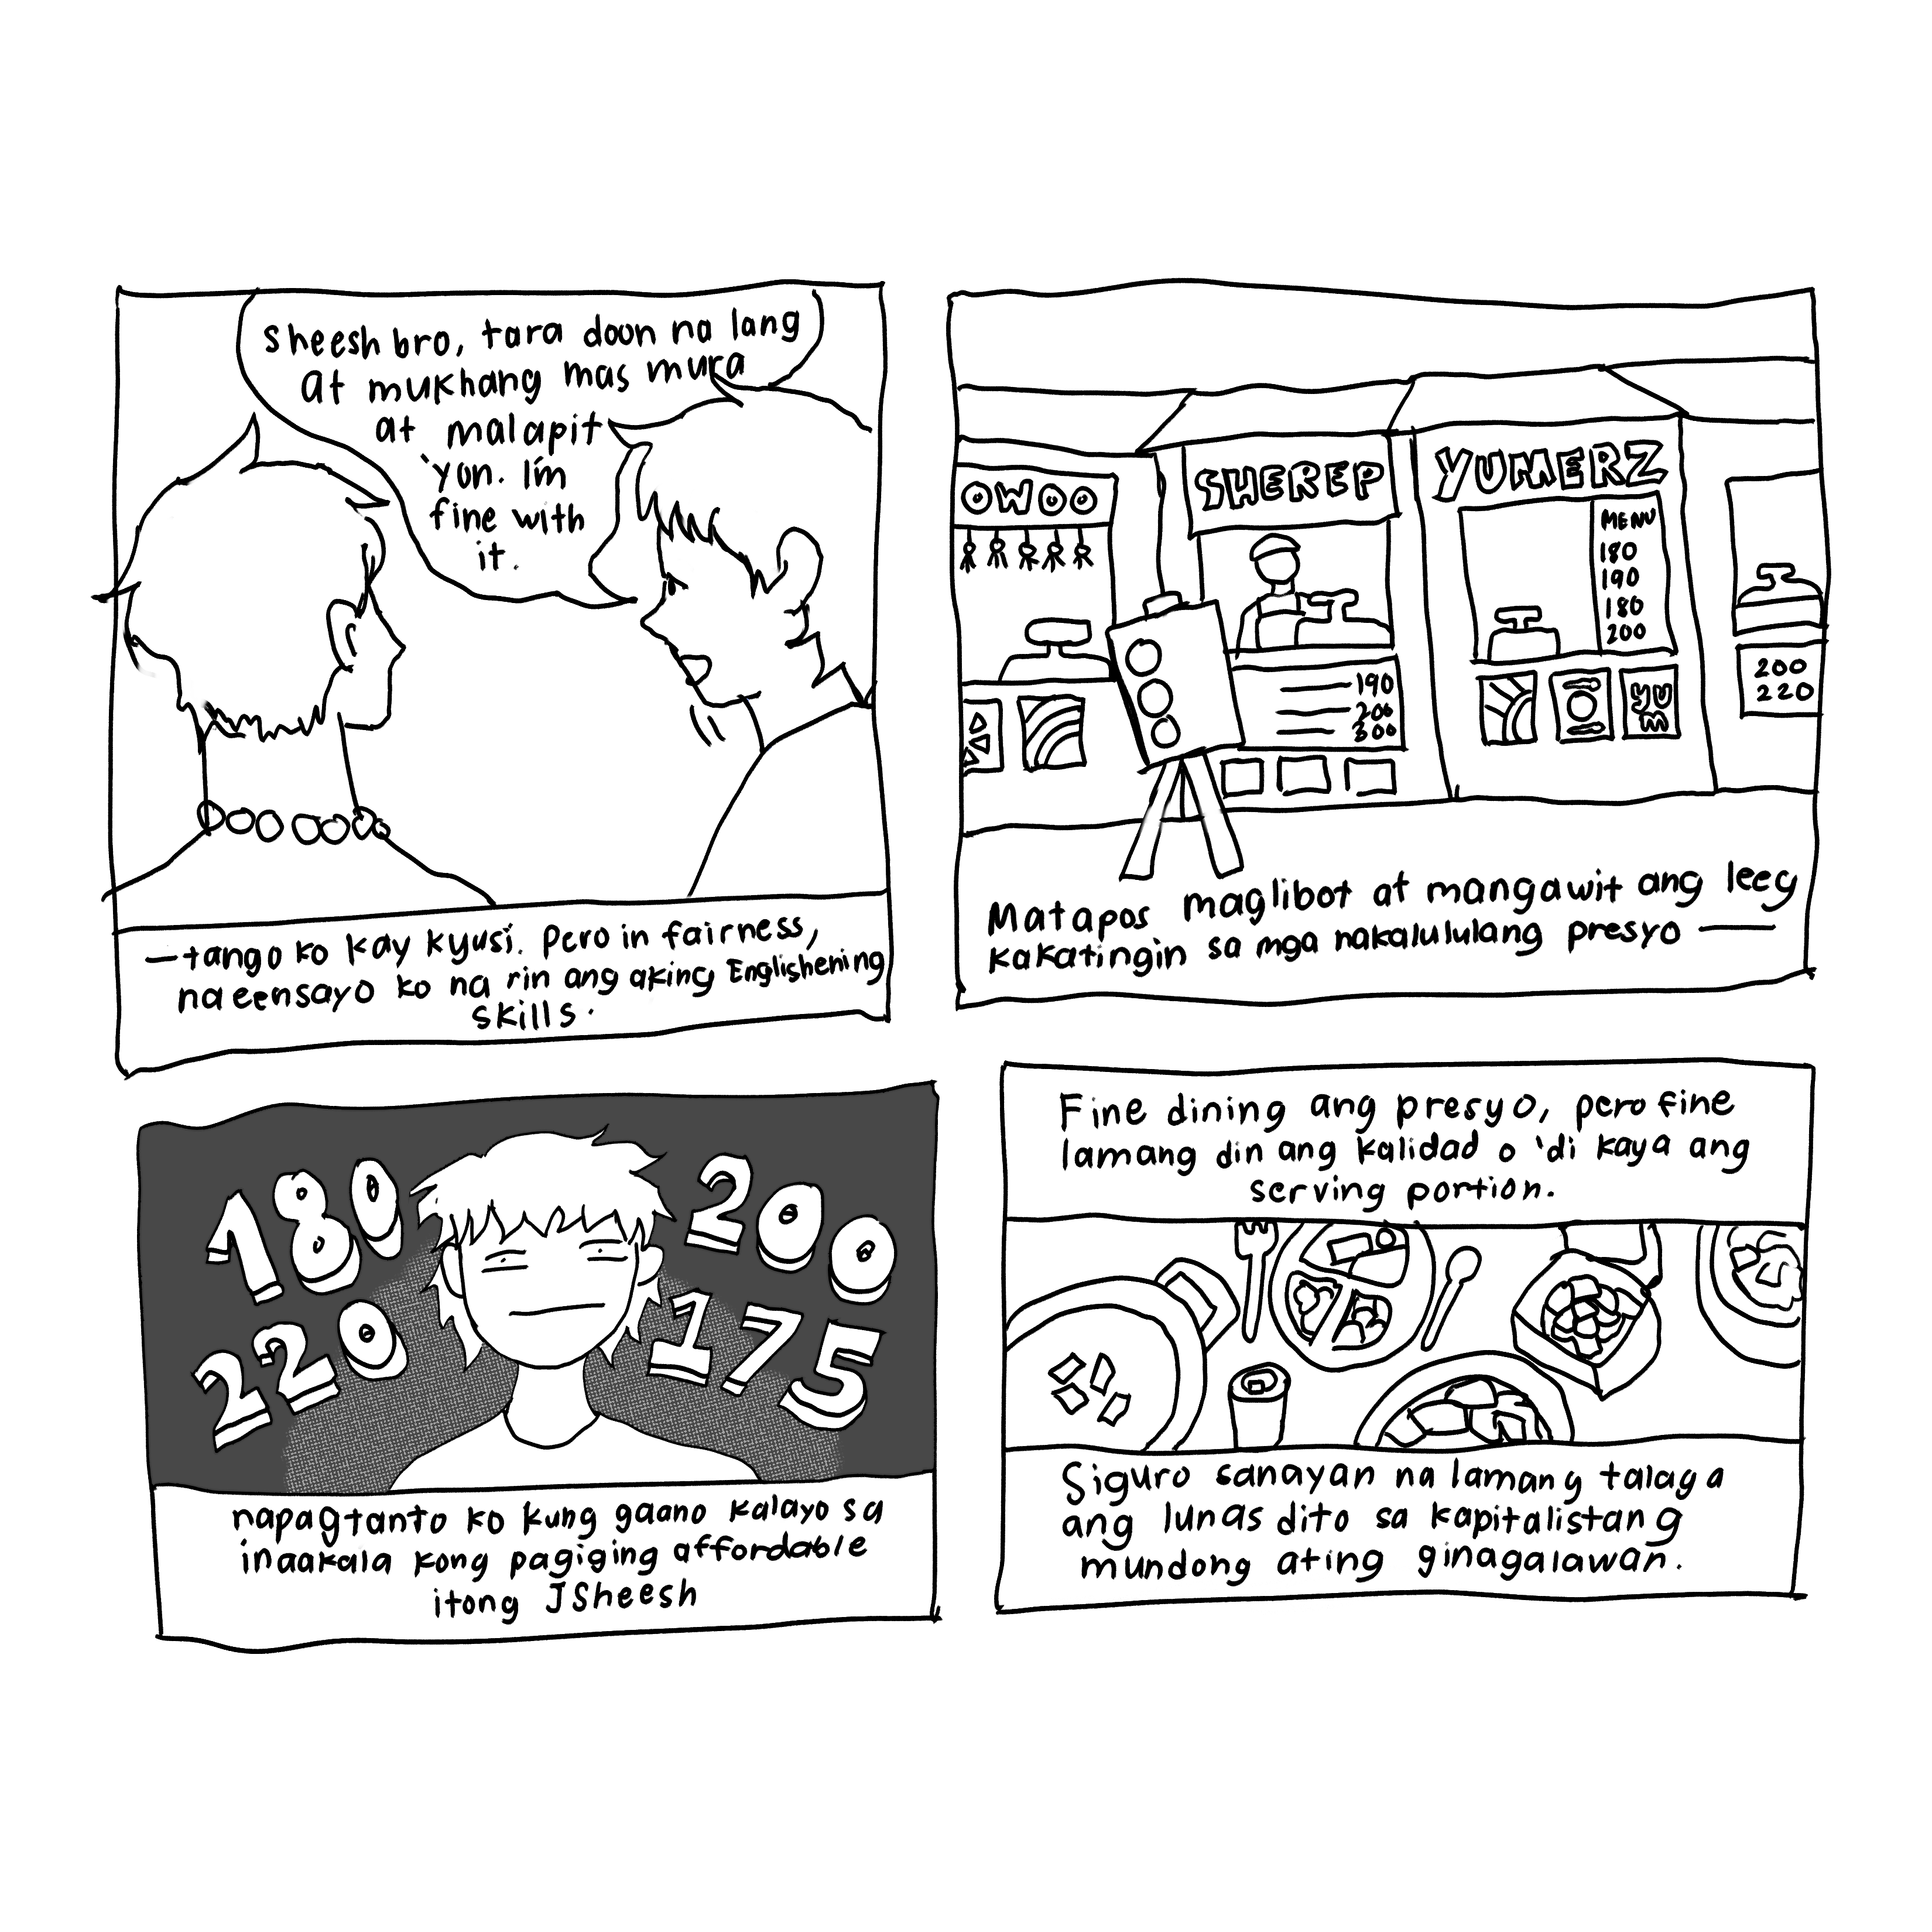 sheesh bro, tara doon na lang
at mukhang mas mura
at malapit
'yun. I'm
fine with
it.
—tango ko kay Kyusi. Pero in fairness,
naeensayo ko na rin ang aking Englishening
skills.
OWOO
SHEREP
YUMERZ
MENU
180
190
180
200
190
200
300
YUM
200
220
Matapos maglibot at mangawit ang leeg
kakatingin sa mga nakalululang presyo —
180
200
220
175
napagtanto ko kung gaano kalayo sa
inaakala kong pagiging affordable
itong JSheesh
Fine dining ang presyo, pero fine
lamang din ang kalidad o 'di kaya ang
serving portion.
Siguro sanayan na lamang talaga
ang lunas dito sa kapitalistang
mundong ating ginagalawan.